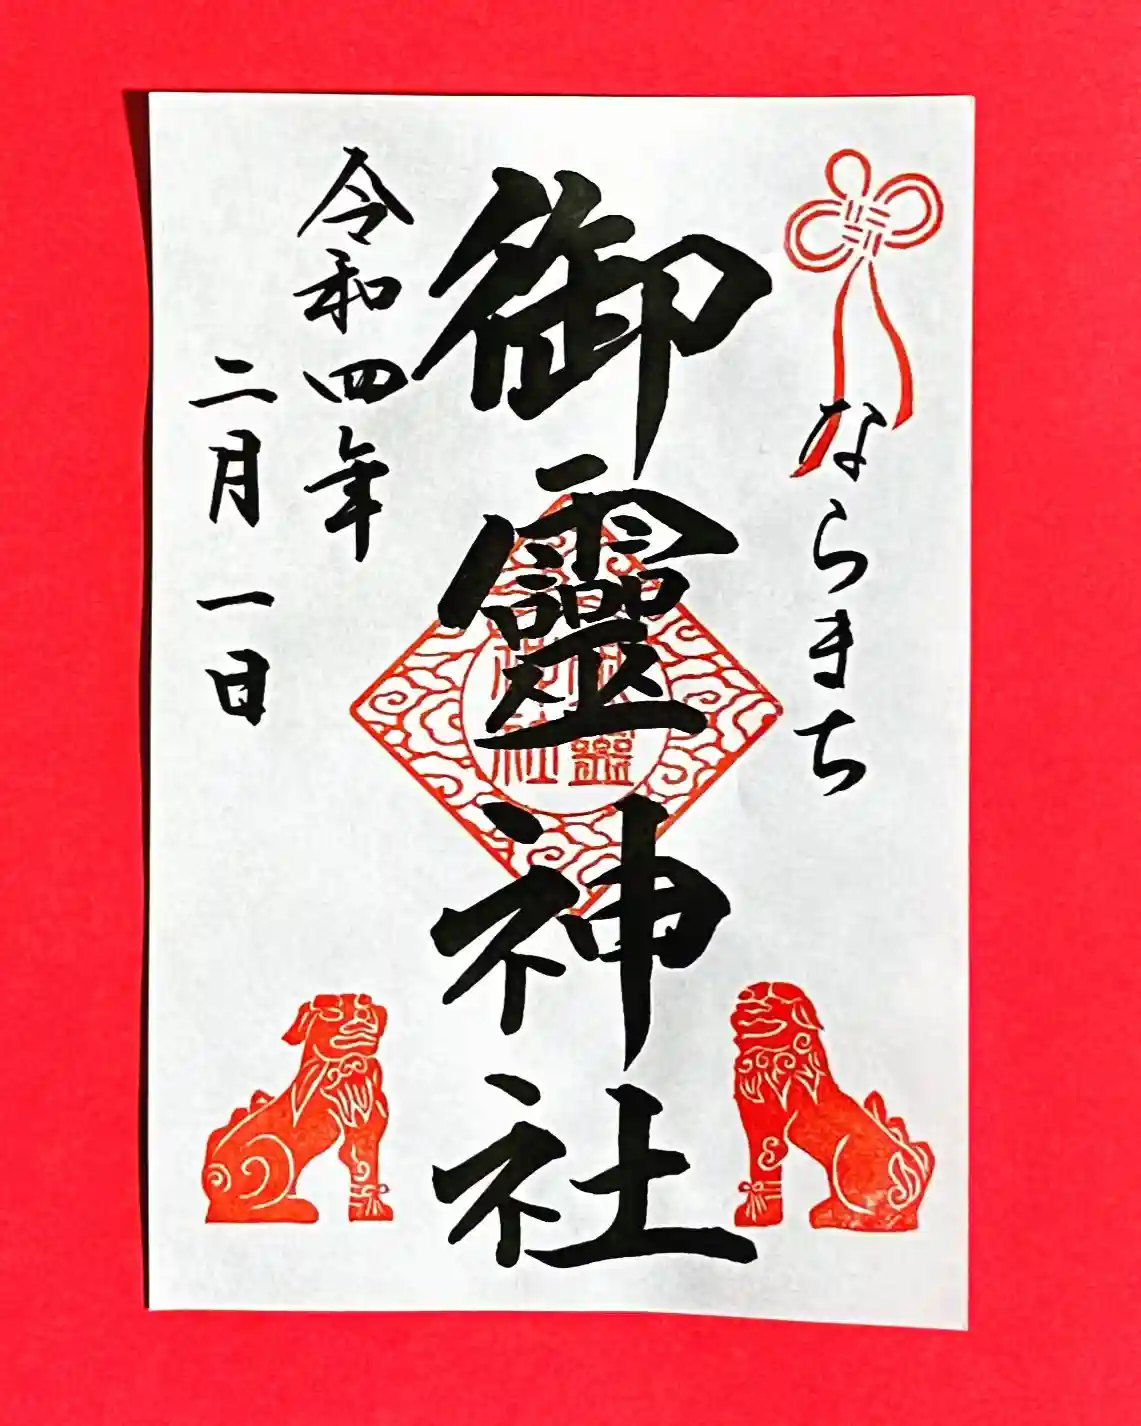 ならまち
御靈神社
令和四年
二月一日